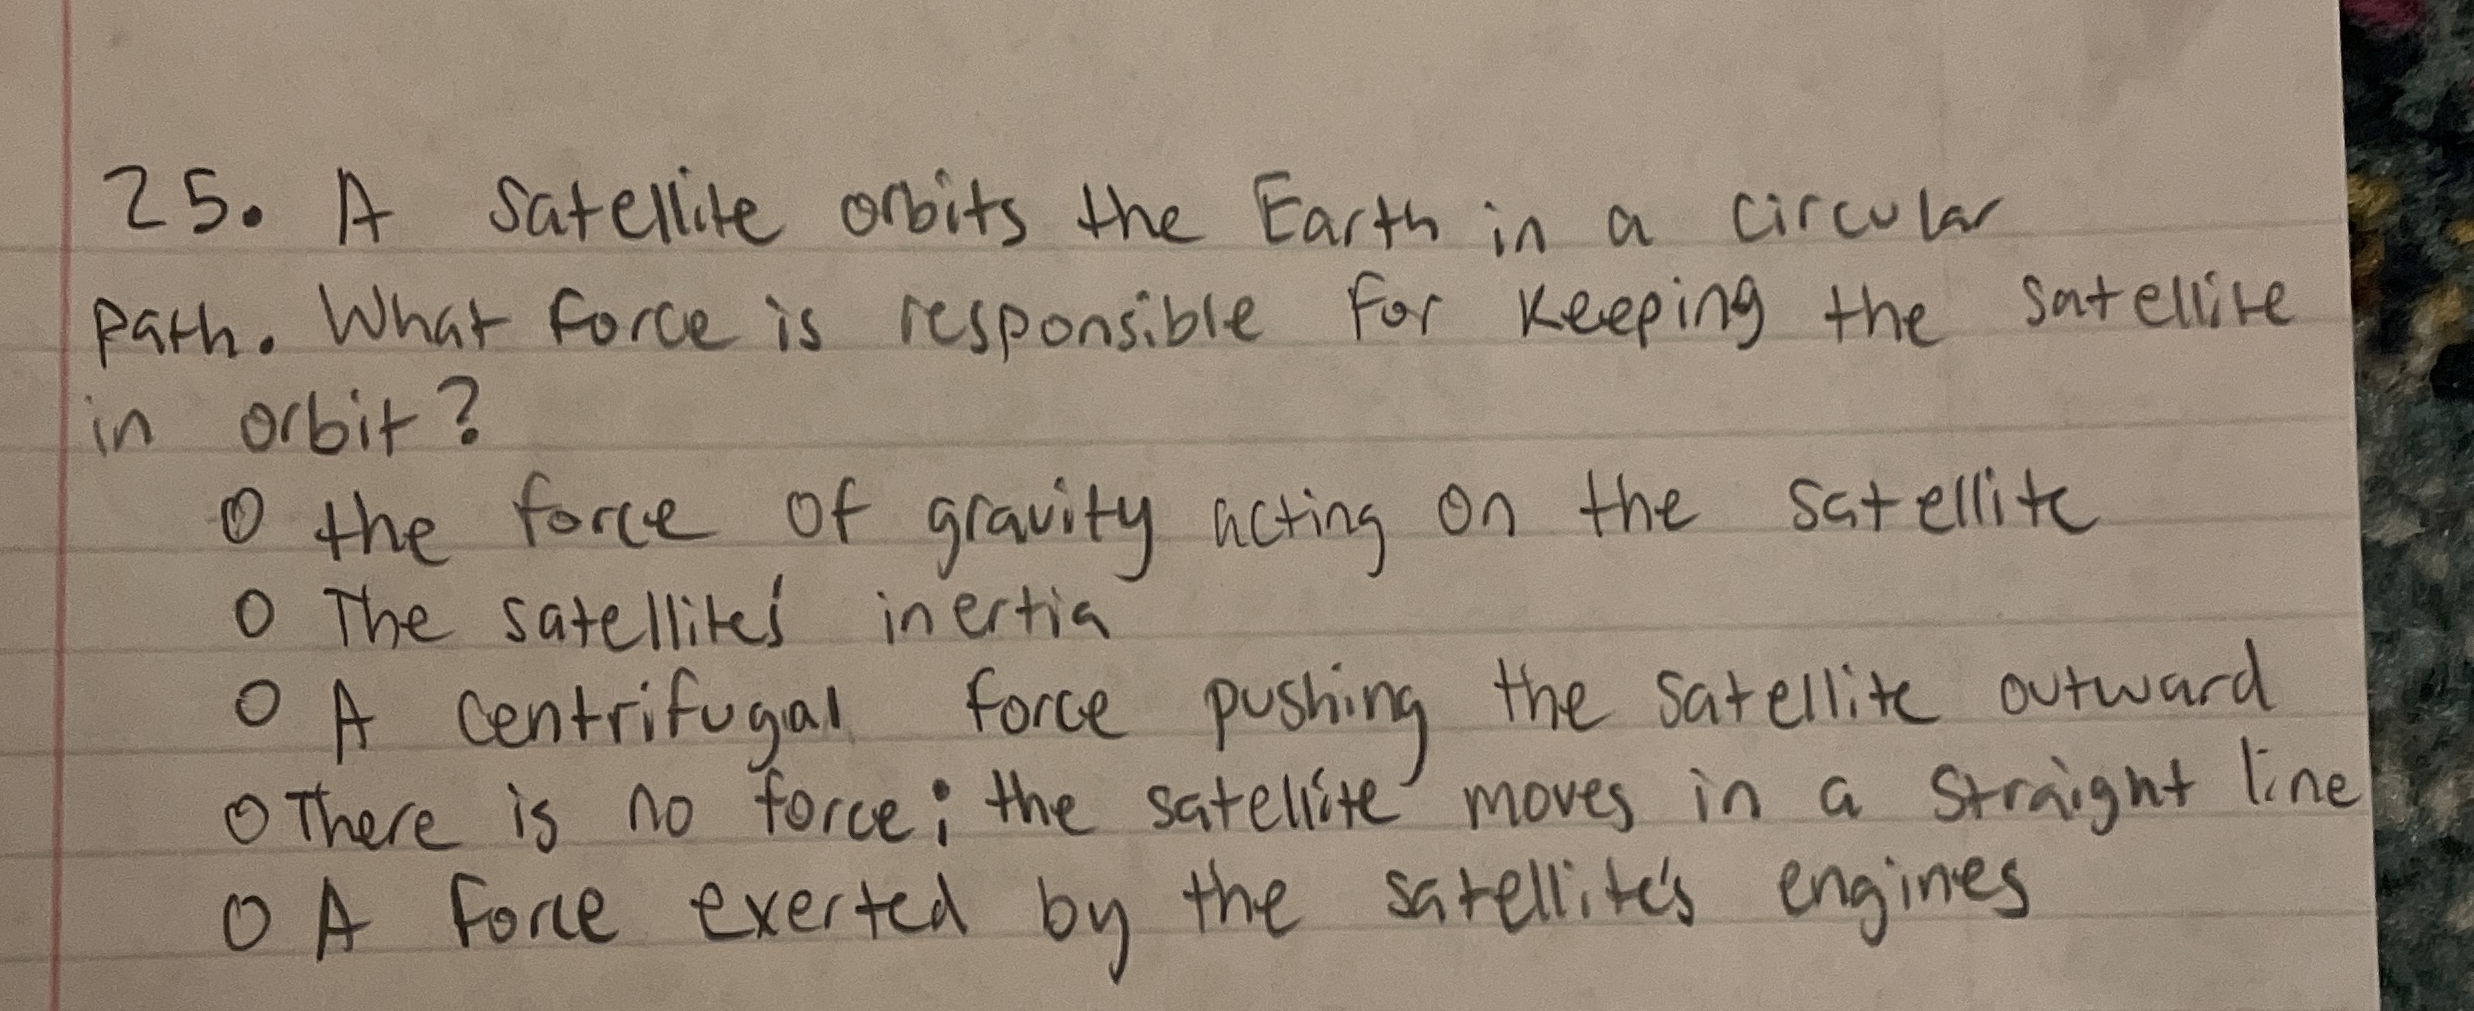 25. A satellite orbits the Earth in a circular
path. What force is responsible for keeping the satellite
in orbit?
O the force of gravity acting on the satellite
O The satellite's inertia
O A centrifugal force pushing the satellite outward
O There is no force; the satellite moves in a straight line
O A force exerted by the satellite's engines